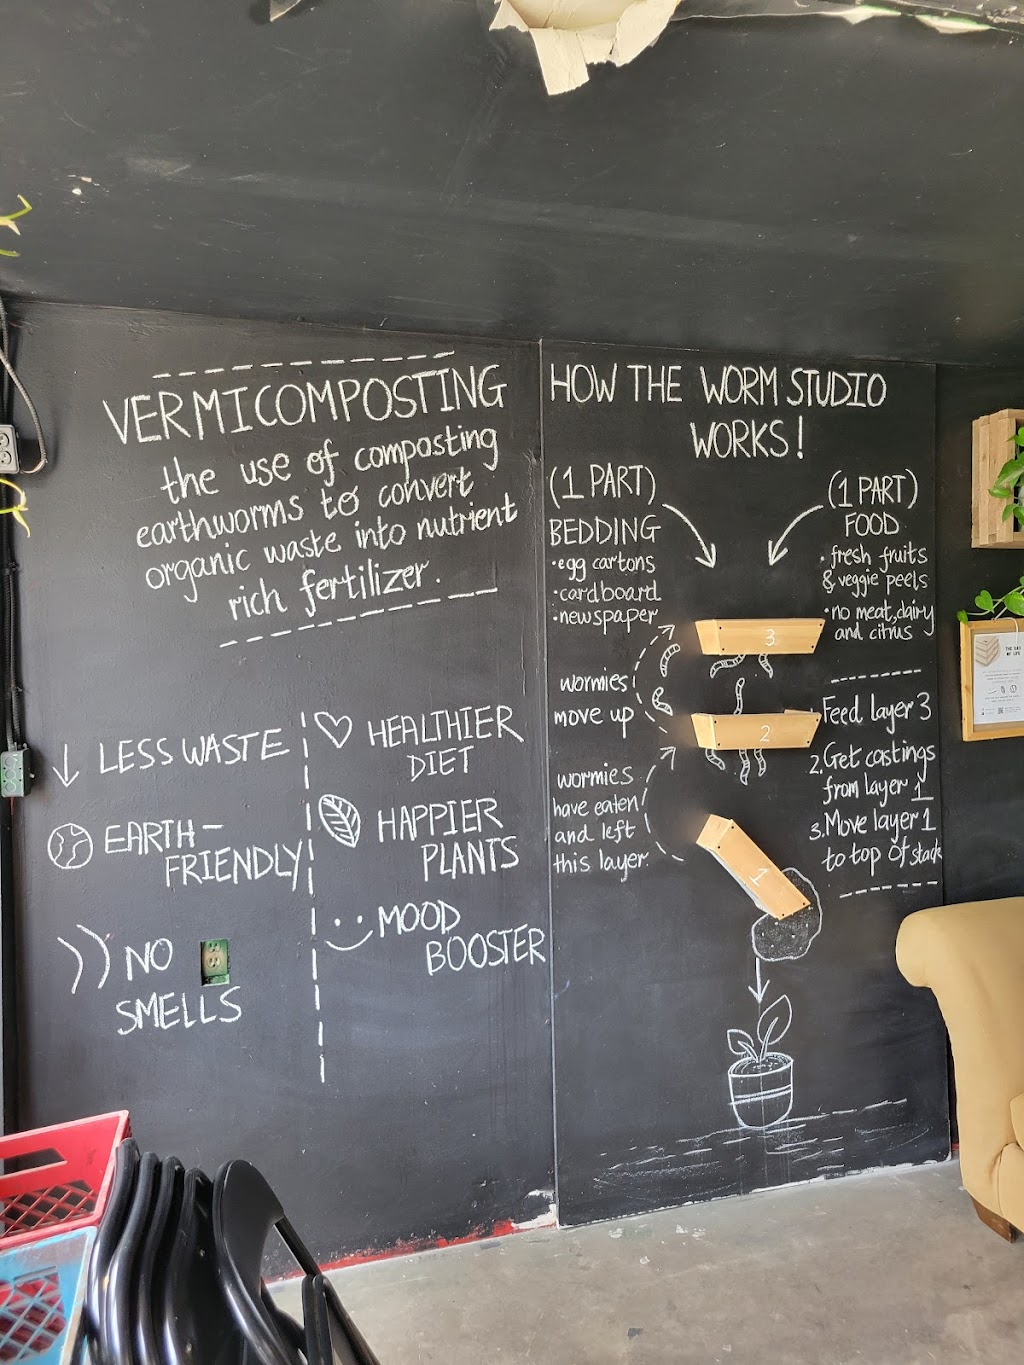 VERMICOMPOSTING
the use of composting
earthworms to convert
organic waste into nutrient
rich fertilizer.
LESS WASTE
EARTH-
FRIENDLY
NO
SMELLS
HEALTHIER
DIET
HAPPIER
PLANTS
MOOD
BOOSTER
HOW THE WORM STUDIO
WORKS!
(1 PART)
BEDDING
•egg cartons
•cardboard
•newspaper
(1 PART)
FOOD
•fresh fruits
& veggie peels
•no meat, dairy
and citrus
3
wormies
move up
2
wormies
have eaten
and left
this layer
1
Feed layer 3
2. Get castings
from layer 1
3. Move layer 1
to top of stack